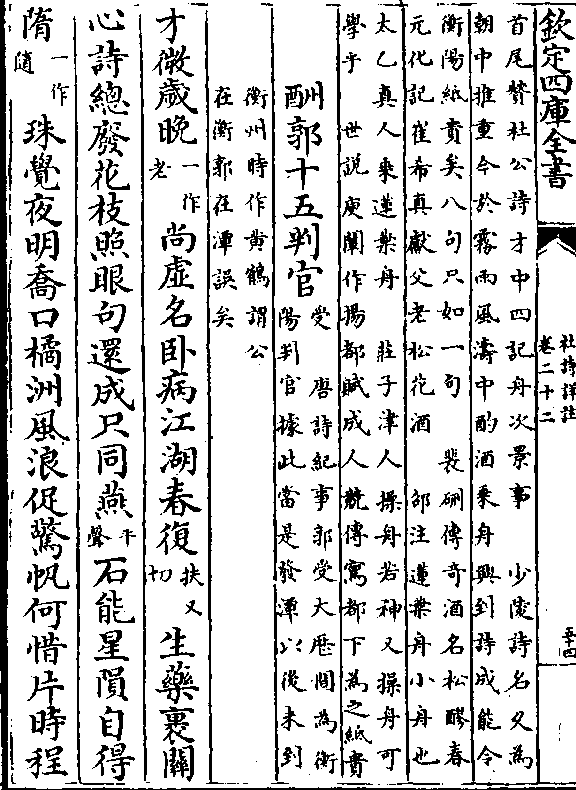 欽定四庫全書
杜詩詳註
卷二十二
首尾贊杜公詩才中四記舟次景事　少陵詩名久為
朝中推重今於霧雨風濤中酌酒乘舟興到詩成能令
衡陽紙貴矣八句只如一句　裴硎傳奇酒名松醪春
元化記崔希真獻父老松花酒　邵注蓮葉舟小舟也
太乙真人乘蓮葉舟　莊子津人操舟若神又操舟可
學乎　世說庾闡作揚都賦成人競傳寫都下為之紙貴
酬郭十五判官受　唐詩紀事郭受大厯間為衡
陽判官據此當是發潭以後未到
衡州時作黄鶴謂公
在衡郭在潭誤矣
才微歲晚一作老尚虛名卧病江湖春復扶又切生藥裹關
心詩總廢花枝照眼句還成只同燕平聲石能星隕自得
隋一作隨珠覺夜明喬口橘洲風浪促驚帆何惜片時程